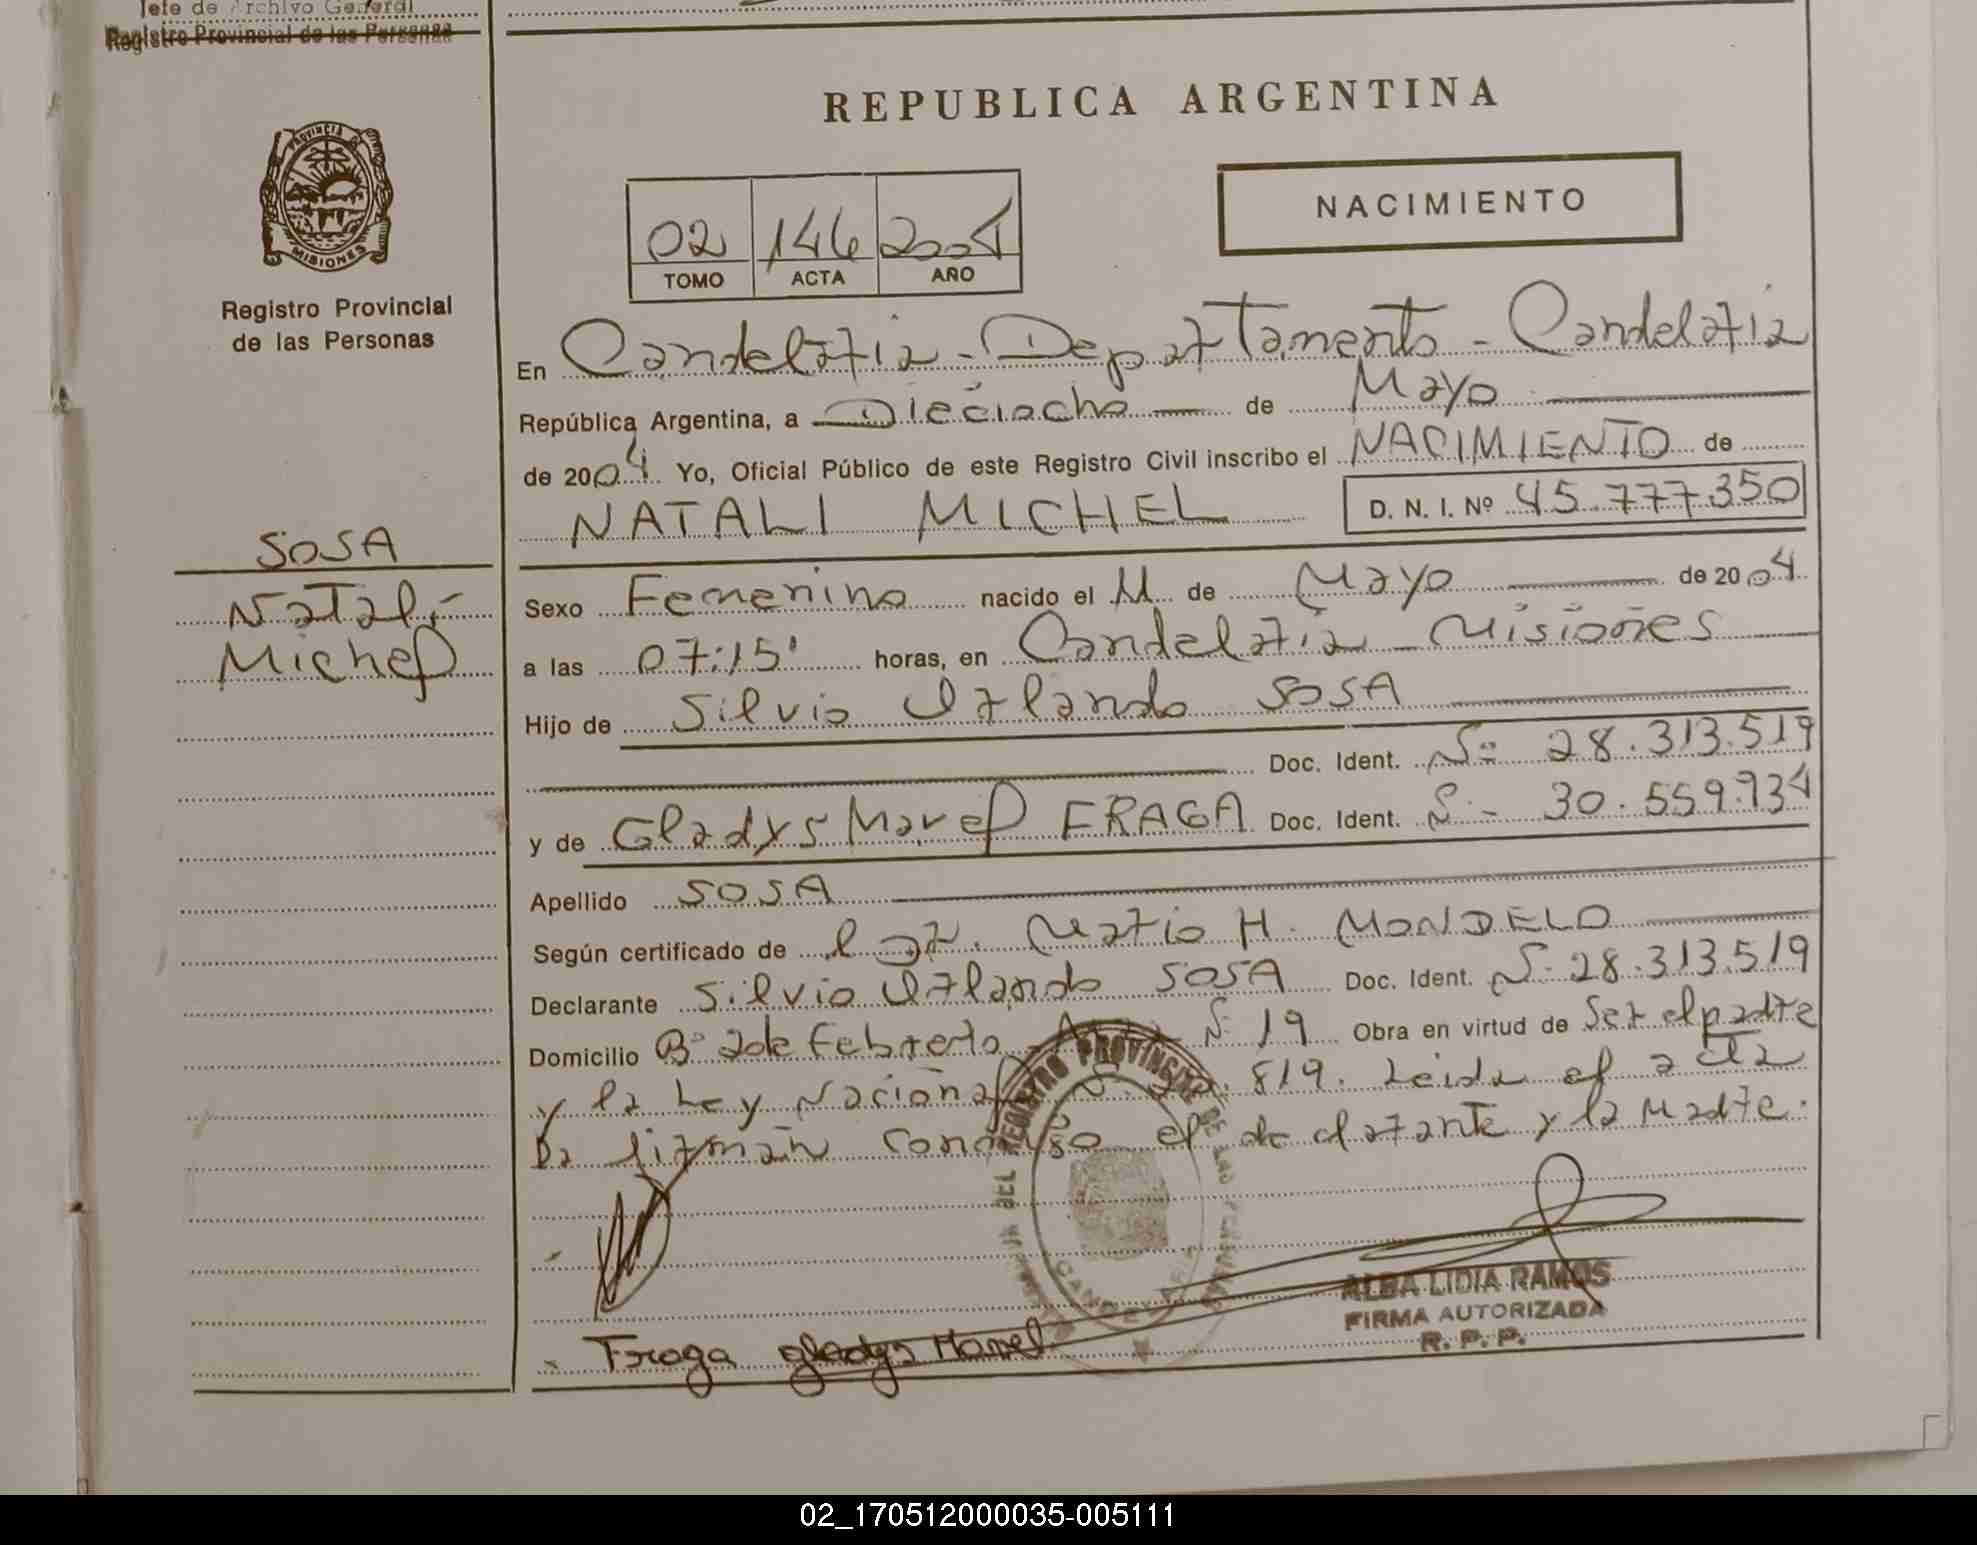 Jefe de Archivo General
Registro Provincial de las Personas
PROVINCIA DE
MISIONES
Registro Provincial
de las Personas
SOSA
Natali
Michel
REPUBLICA ARGENTINA
NACIMIENTO
02 146 2004
TOMO ACTA AÑO
En Candelaria - Departamento - Candelaria
República Argentina, a Dieciocho de Mayo
de 2004 Yo, Oficial Público de este Registro Civil inscribo el NACIMIENTO de
NATALI MICHEL D. N. I. Nº 45.777.350
Sexo Femenino nacido el 11 de Mayo de 2004
a las 07:15' horas, en Candelaria - Misiones
Hijo de Silvio Orlando SOSA
Doc. Ident. Nº 28.313.519
y de Gladys Mavel FRAGA Doc. Ident. Nº 30.559.934
Apellido SOSA
Según certificado de Mario H. MONDELO
Declarante Silvio Orlando SOSA Doc. Ident. Nº 28.313.519
Domicilio Bº 2 de Febrero Nº 19 Obra en virtud de Ser el padre
y la Ley Nacional Nº 819. Leida el acta
la firman conmigo el declarante y la Madre.
DEL REGISTRO PROVINCIAL DE LAS PERSONAS
CANDELARIA
ALBA LIDIA RAMOS
FIRMA AUTORIZADA
R. P. P.
Fraga gladys Mavel
02_170512000035-005111